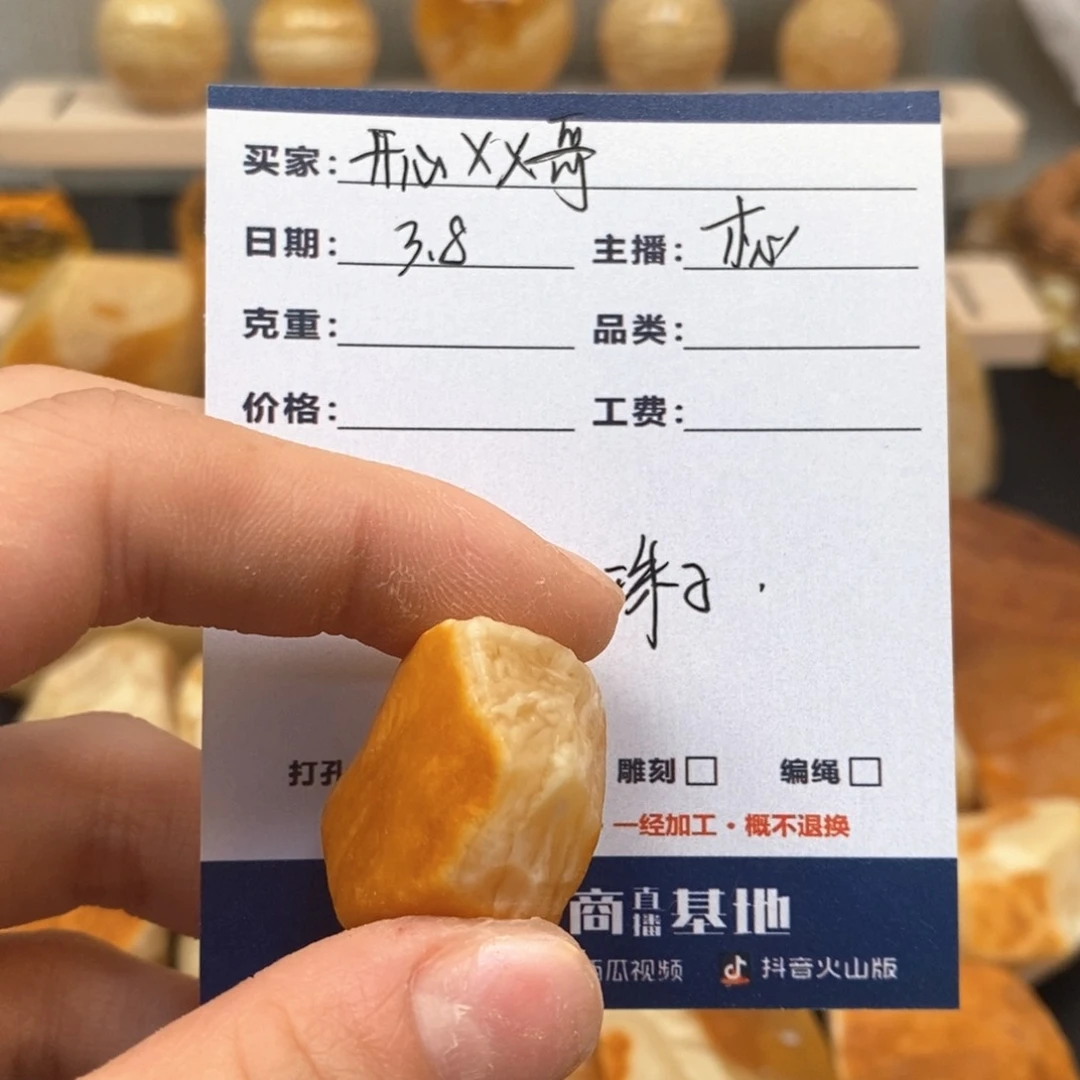 买家: 开心XX哥
日期: 3.8 主播:
克重: 品类:
价格: 工费:
珠子.
打孔 雕刻 编绳
一经加工·概不退换
商直播基地
西瓜视频 抖音火山版